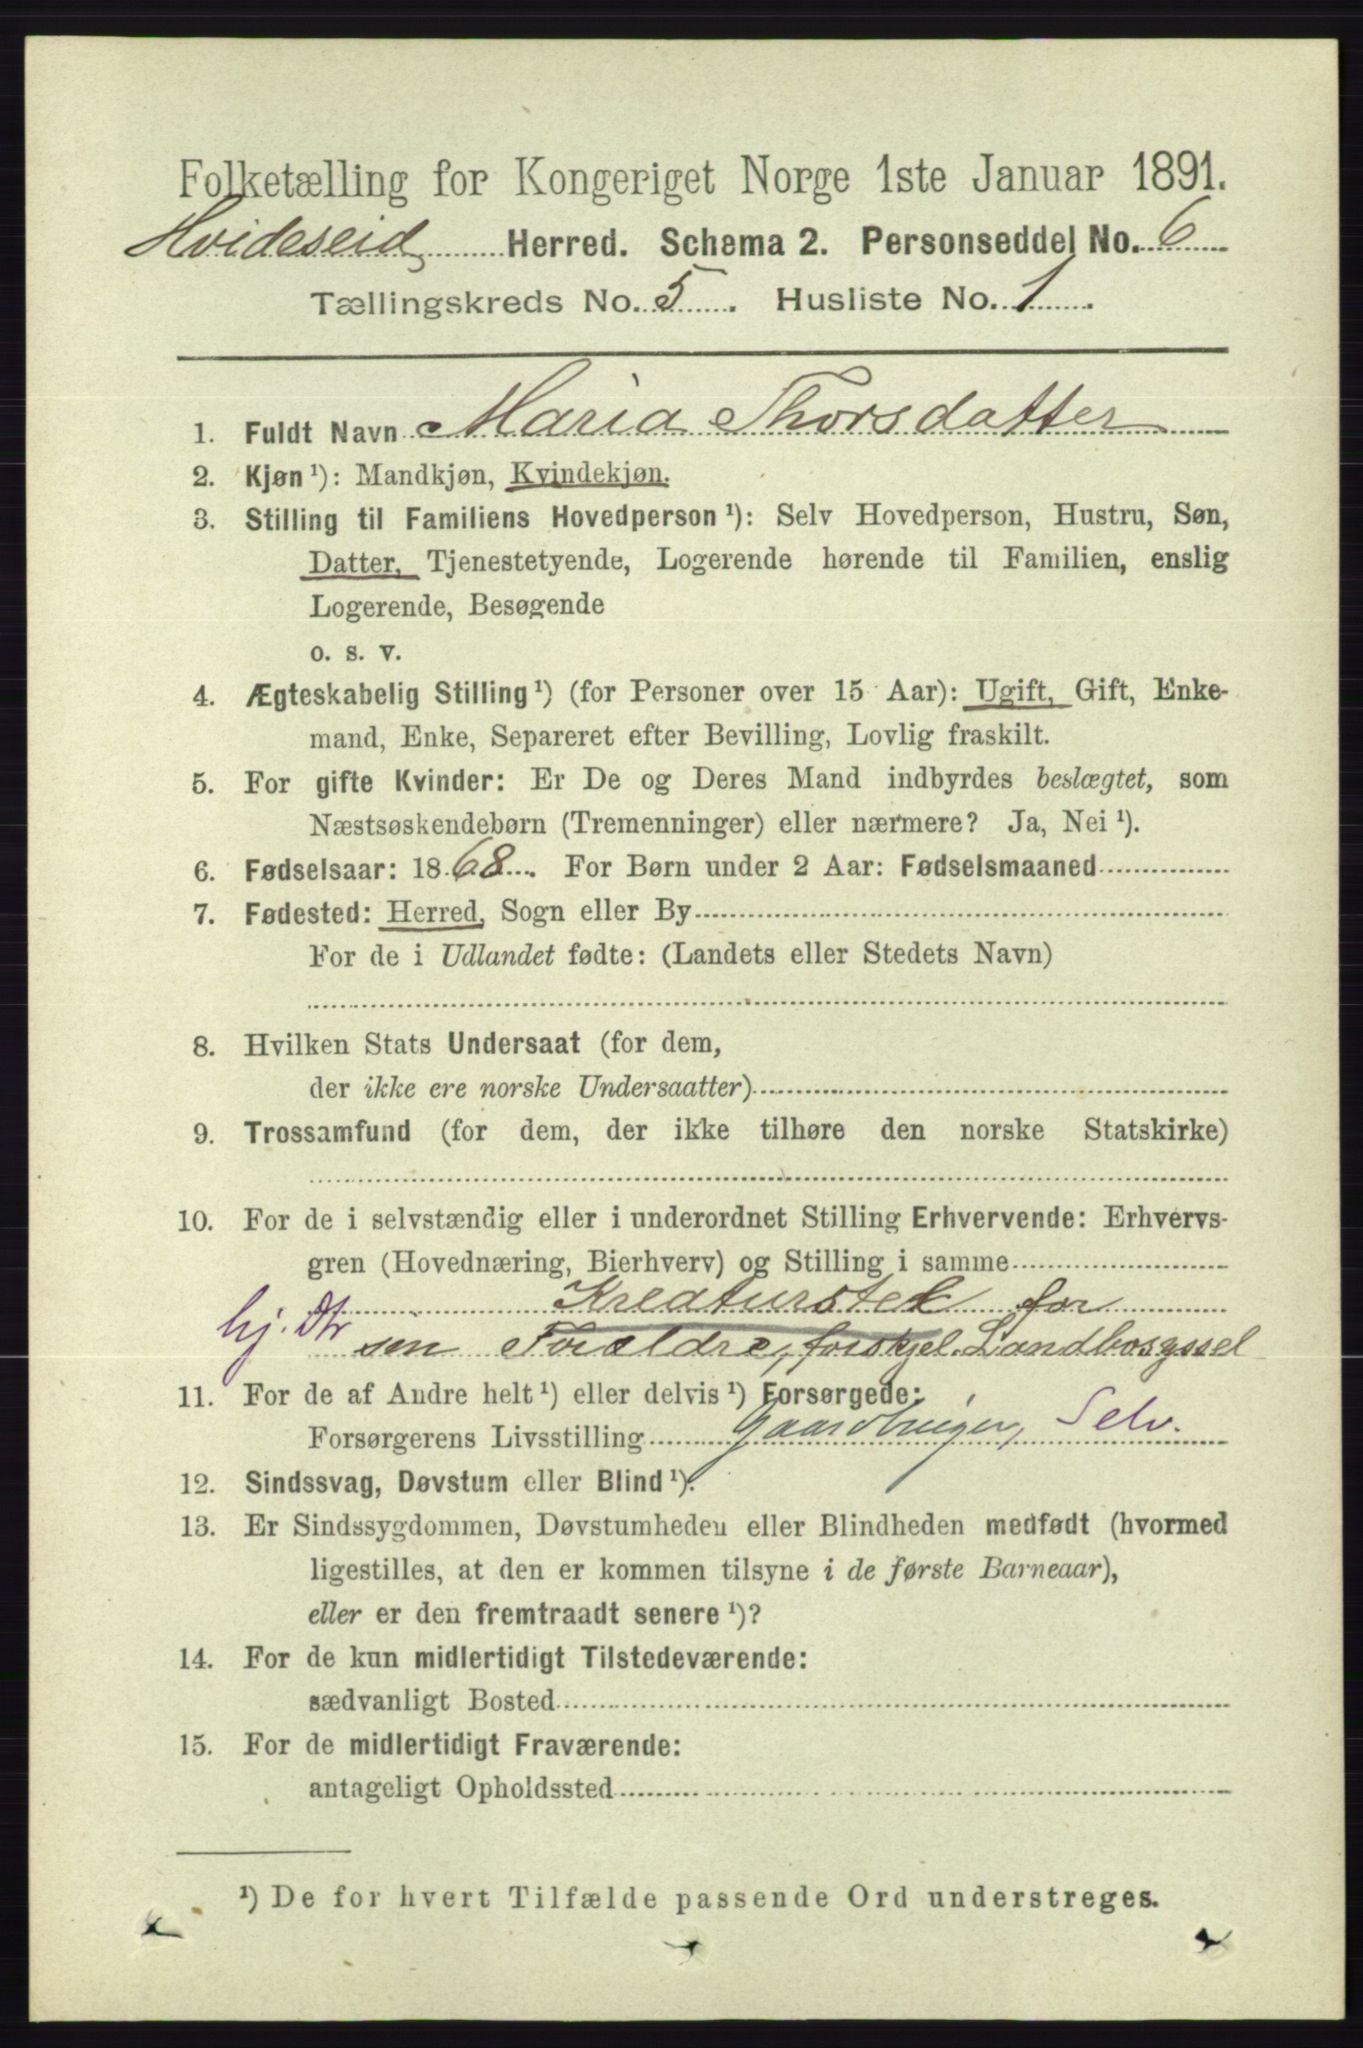 Folketælling for Kongeriget Norge 1ste Januar 1891.
Hvideseid Herred. Schema 2. Personseddel No. 6
Tællingskreds No. 5. Husliste No. 1.
1. Fuldt Navn Maria Thorsdatter
2. Kjøn ¹): Mandkjøn, Kvindekjøn.
3. Stilling til Familiens Hovedperson ¹): Selv Hovedperson, Hustru, Søn,
Datter, Tjenestetyende, Logerende hørende til Familien, enslig
Logerende, Besøgende
o. s. v.
4. Ægteskabelig Stilling ¹) (for Personer over 15 Aar): Ugift, Gift, Enke-
mand, Enke, Separeret efter Bevilling, Lovlig fraskilt.
5. For gifte Kvinder: Er De og Deres Mand indbyrdes beslægtet, som
Næstsøskendebørn (Tremenninger) eller nærmere? Ja, Nei ¹).
6. Fødselsaar: 1868. For Børn under 2 Aar: Fødselsmaaned
7. Fødested: Herred, Sogn eller By
For de i Udlandet fødte: (Landets eller Stedets Navn)
8. Hvilken Stats Undersaat (for dem,
der ikke ere norske Undersaatter)
9. Trossamfund (for dem, der ikke tilhøre den norske Statskirke)
10. For de i selvstændig eller i underordnet Stilling Erhvervende: Erhvervs-
gren (Hovednæring, Bierhverv) og Stilling i samme
Kreaturstel for
hj. Dtr
sin Forældre, forskjel. Landbosyssel
11. For de af Andre helt ¹) eller delvis ¹) Forsørgede:
Forsørgerens Livsstilling Gaardbruger, Selv.
12. Sindssvag, Døvstum eller Blind ¹).
13. Er Sindssygdommen, Døvstumheden eller Blindheden medfødt (hvormed
ligestilles, at den er kommen tilsyne i de første Barneaar),
eller er den fremtraadt senere ¹)?
14. For de kun midlertidigt Tilstedeværende:
sædvanligt Bosted
15. For de midlertidigt Fraværende:
antageligt Opholdssted
¹) De for hvert Tilfælde passende Ord understreges.